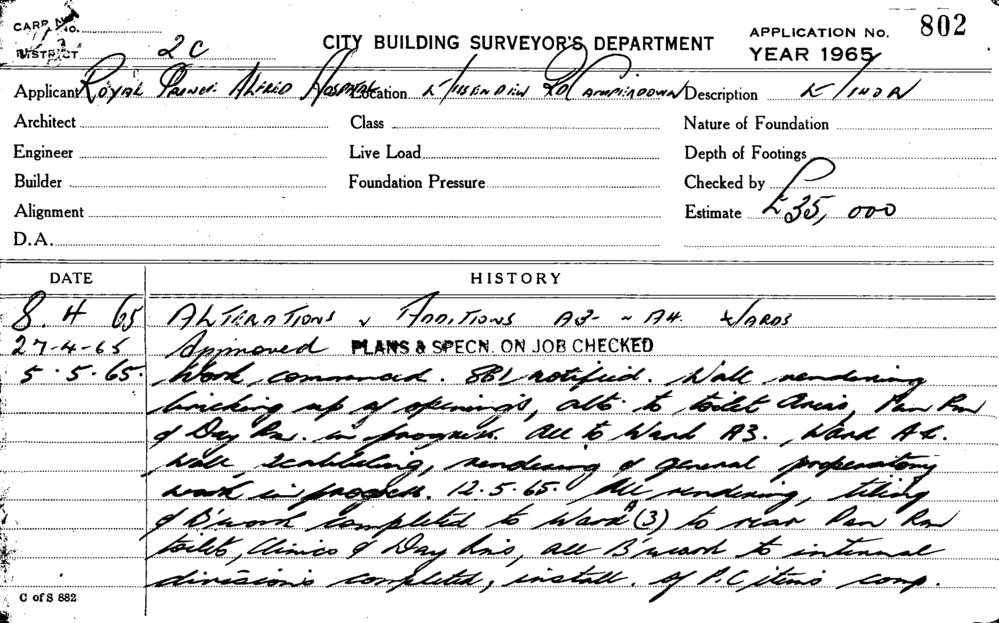 CARD No.
DISTRICT 2C
CITY BUILDING SURVEYOR'S DEPARTMENT
APPLICATION No. 802
YEAR 1965
Applicant Royal Prince Alfred Hospital Location Missenden Rd Camperdown Description
Architect Class Nature of Foundation
Engineer Live Load Depth of Footings
Builder Foundation Pressure Checked by
Alignment Estimate £35,000
D.A.
DATE HISTORY
8. 4 65 ALTERATIONS & ADDITIONS A3 - A4. WARDS
27-4-65 Approved PLANS & SPECN. ON JOB CHECKED
5.5.65. Work commenced. 881 notified. Wall rendering
bricking up of openings, alts to toilet areas, Pan Rm
& Day Rm. in progress. All to Ward A3. Ward A4.
Wall scabbling, rendering & general preparatory
work in progress. 12.5.65. All rendering, tiling
& B'work completed to Ward A (3) to rear Pan Rm
toilet, Clinics & Day Rms, all B'work to internal
divisions completed, install. of P.C items comp.
C of S 882